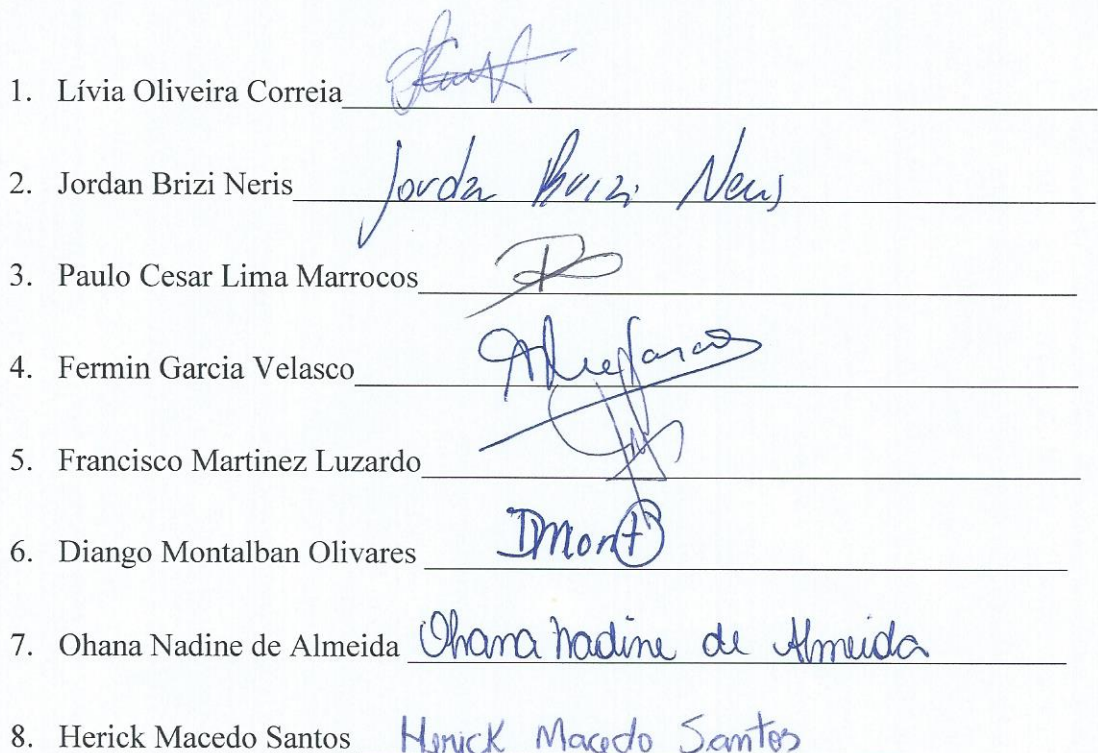 1. Lívia Oliveira Correia
2. Jordan Brizi Neris Jorda Brizi Neris
3. Paulo Cesar Lima Marrocos
4. Fermin Garcia Velasco
5. Francisco Martinez Luzardo
6. Diango Montalban Olivares DMont
7. Ohana Nadine de Almeida Ohana Nadine de Almeida
8. Herick Macedo Santos Herick Macedo Santos